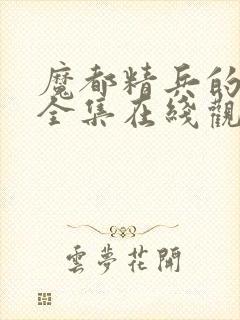 魔都精兵的
全集在綫觀
雲夢花開